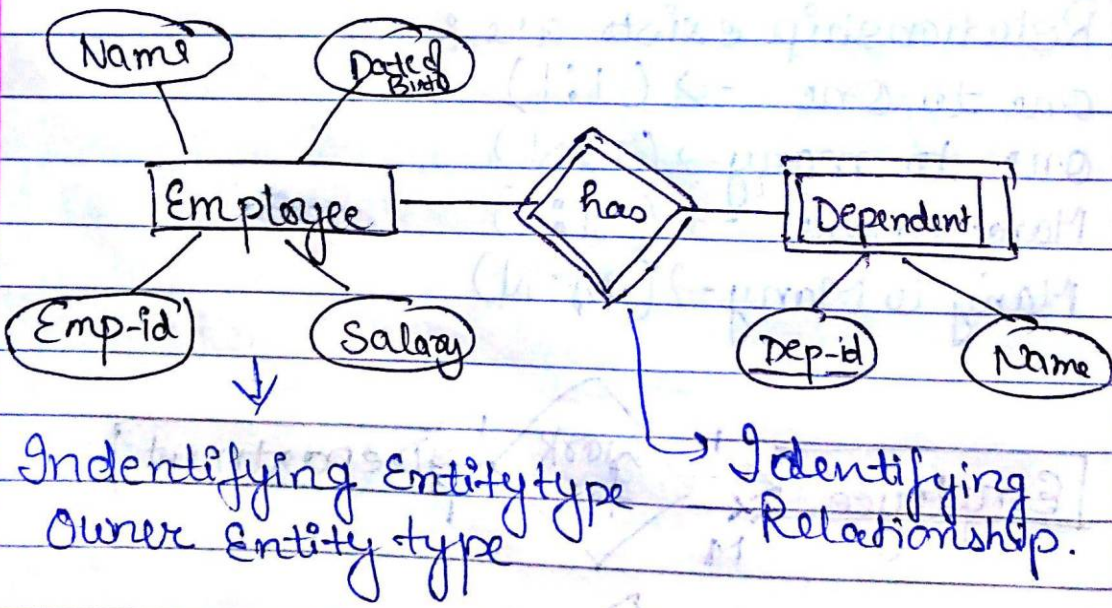 Name
Date of
Birth
Employee
has
Dependent
Emp-id
Salary
Dep-id
Name
Indentifying Entity type
Owner Entity type
Identifying
Relationship.